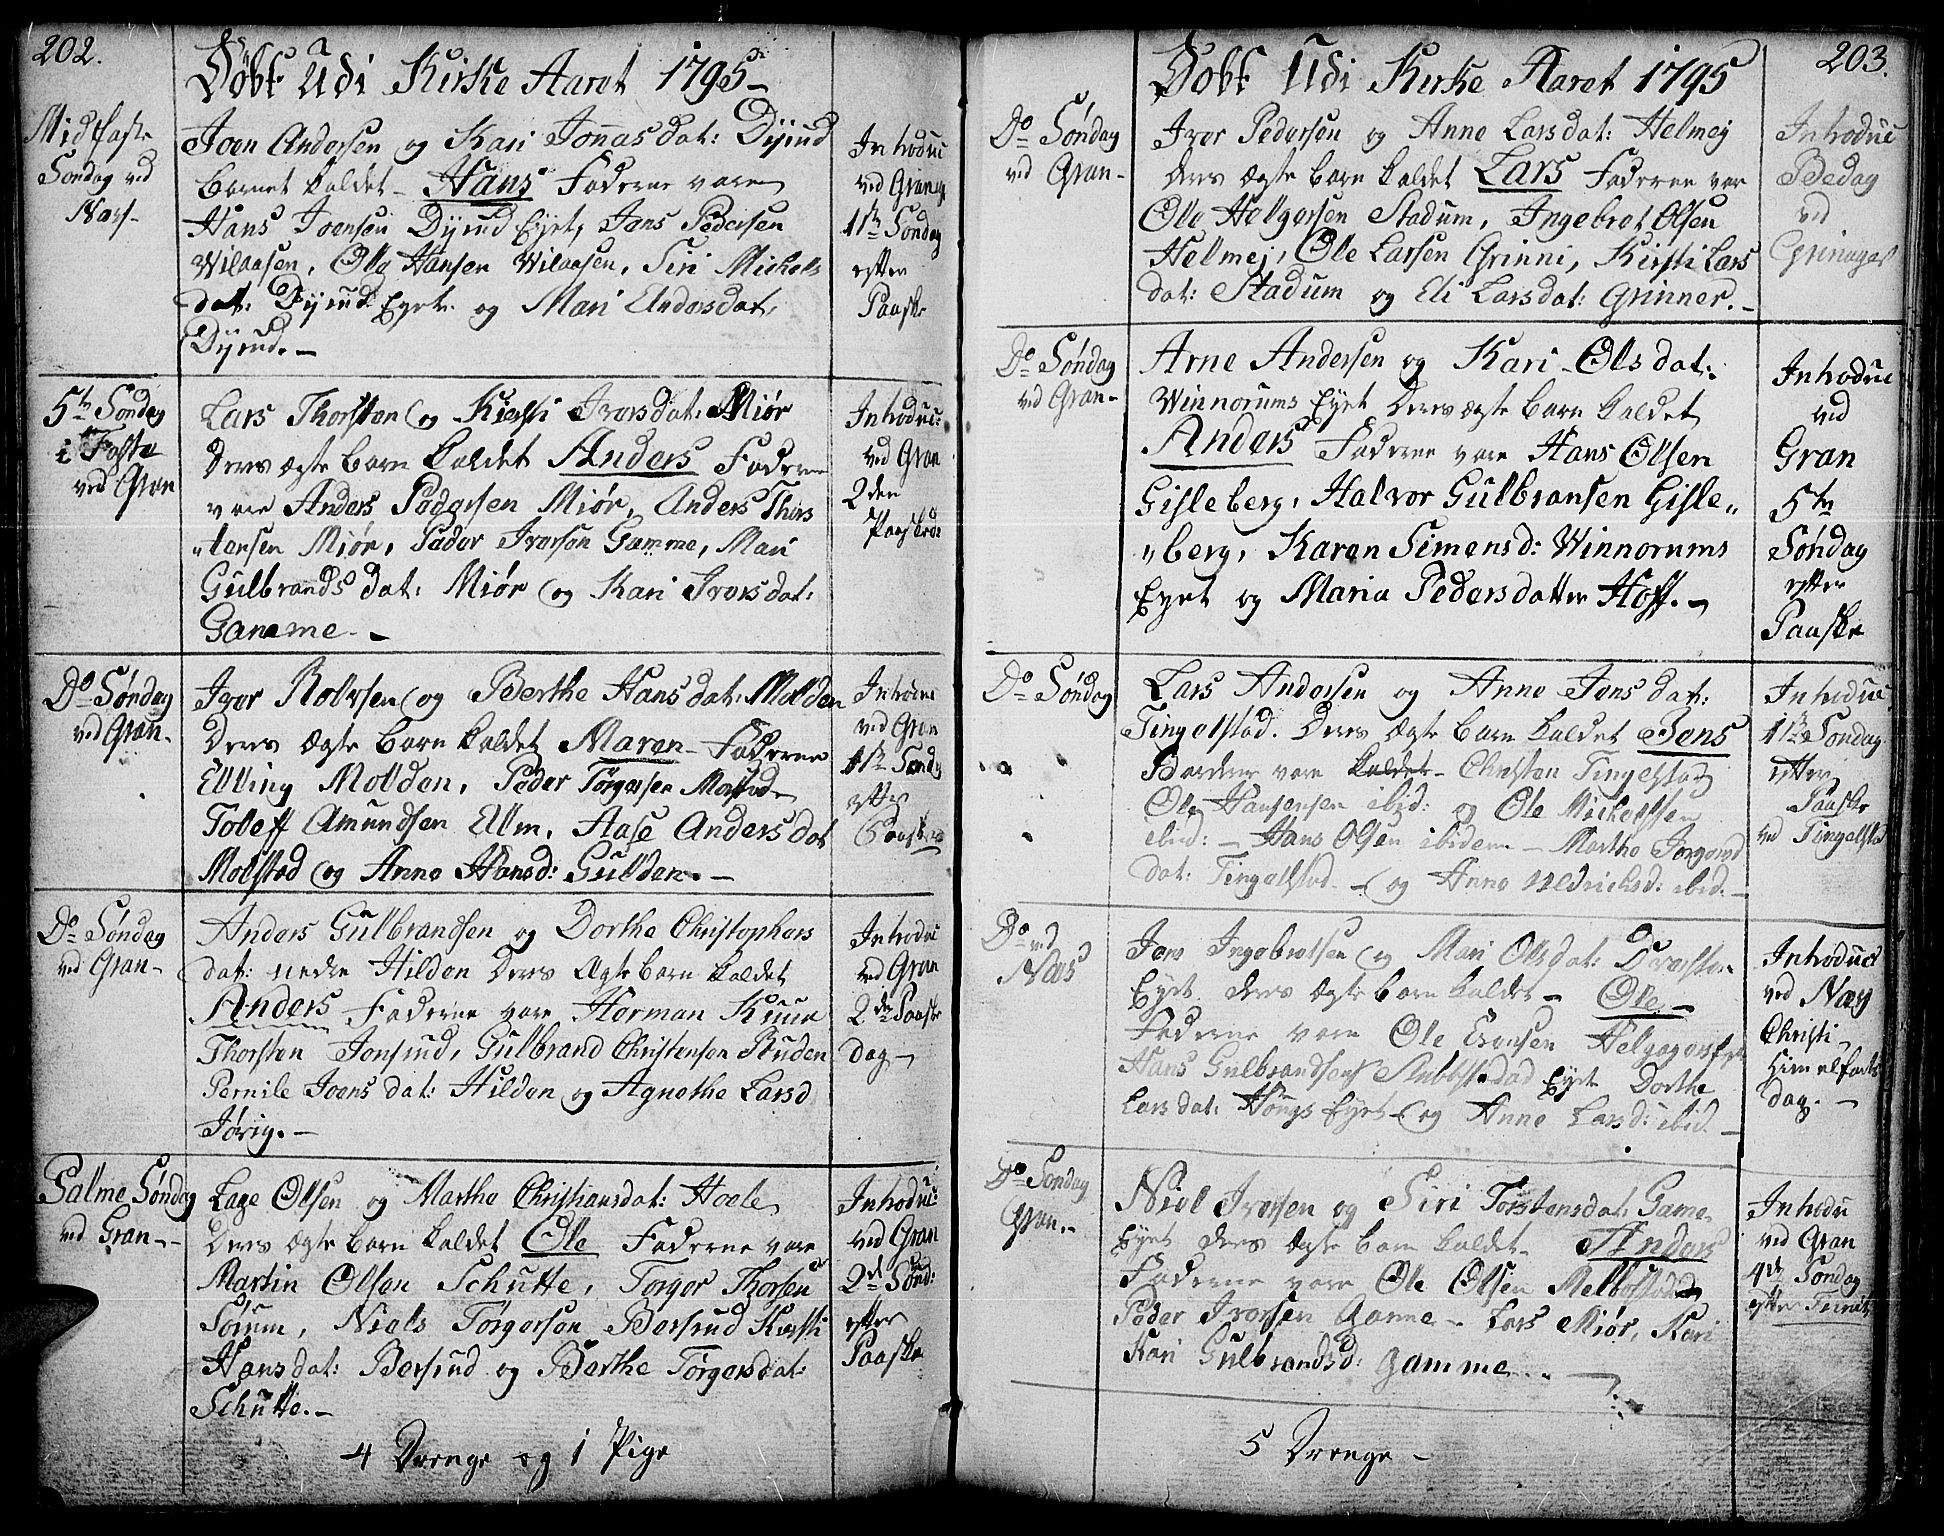 202.
Döbt Udi Kirke Aaret 1795
Midfaste
Søndag ved
Næs-
Joen Andersen og Kari Jonasdat: Dÿnud
barnet kaldet - Hans Faderne vare
Hans Joensen Dynud Eyet, Jens Pedersen
Wilaasen, Ole Hansen Wilaasen, Siri Michels
dat: Dynud Eyet og Mari Endersdat,
Dynud. -
Introduc
ved Gran
1ste Søndag
efter
Paaske
5te Søndag
i Faste
ved Gran
Lars Thorsten og Kiersti Iversdat: Miør
Deres ægte barn kaldet Anders Faderne
vare Anders Pedersen Miør, Anders Thors
"tensen Miør, Peder Iversen Gamme, Mari
Gulbrandsdat: Miør og Kari Iversdat:
Gamme. -
Introduc:
ved Gran
2den
Paaskede
Do Søndag
ved Gran-
Iver Rolvsen og Berthe Hansdat: Molden
Deres ægte barn kaldet Maren - Faderne
Elling Molden, Peder Torgersen Molstad
Toleff Amundsen Elm, Aase Andersdat
Molstad og Anne Hansd: Gulden. -
Introduc
ved Gran
1ste Sønd
efter
Paaske
Do Søndag
ved Gran-
Anders Gulbrandsen og Dorthe Christophers
dat: nedre Hilden Deres Ægte barn kaldet
Anders Faderne vare Herman
Thorsten Gulbrand Christensen Ruden
Pernile Joensdat: Hilden og Agnethe Larsd
Jørig. -
Introduc
ved Gran
2den Paaske
Dag -
Palme Søndag
ved Gran-
Lage Olsen og Marthe Christiansdat: Hoele
Deres ægte barn kaldet Ole Faderne vare
Martin Olsen Schutte, Torger Thorsen
Sørum, Niels Törgersen Bersund Kersti
Hansdat: Bersund og Berthe Torgersdat:
Schutte. -
Introduc:
ved Gran
2de Sønd:
efter
Paaske
4 Drenge og 1 Pige
203.
Dobt Udi Kirke Aaret 1795
Do Søndag
ved Gran -
Iver Pedersen og Anne Larsdat: Helmej
Deres ægte barn kaldet Lars Faderne var
Ole Helgersen Stadum, Ingebret Olsen
Helmej, Ole Larsen Grinni, Kirsti Lars
dat: Stadum og Eli Larsdat: Grinner. -
Introduc
Bedag
ved
Do Søndag
ved Gran-
Arne Andersen og Kari Olsdat:
Winnorums Eyet Deres ægte barn kaldet
Anders Faderne vare Hans Olsen
Gisleberg, Halvor Gulbransen Gisle„
"berg, Karen Simensd: Winnorums
Eyet og Maria Pedersdatter Hoff. -
Introduc
ved
Gran
5te
Søndag
efter
Paaske
Do Søndag
Lars Andersen og Anne Jensdat:
Tingelstad. Deres Ægte barn kaldet Jens
Fardere vare kaldet - Christen Tingelstad
Ole Hansensen ibid: og Ole Michelsen
ibid: - Hans Olsen ibidem - Marthe Jorgensd
dat: Tingelstad - og Anne Uldrichsd: ibid. -
Introduc
1ste Søndag
efter
Paaske
ved Tingelstad
Do ved
Næs
Jens Ingebretsen og Mari Olsdat:
Eyet deres ægte barn kaldet - Ole -
Faderne vare Ole
Hans Gulbrandsens Eyet Dorthe
Larsdat: Höngs Eyet og Anne Larsd: ibid. -
Introduct
ved Næs
Christi
Himelfarts
dag. -
Do Søndag
Gran. -
Niel Iversen og Siri Torstensdat: Game
Eyet deres ægte barn kaldet - Anders
Faderne vare Ole Olsen Melbostad
Peder Iversen Gamme - Lars Miør, Kari
Kari Gulbrandsd: gamme. -
Introdu
ved Gran
4de Søndag
efter
5 Drenge -